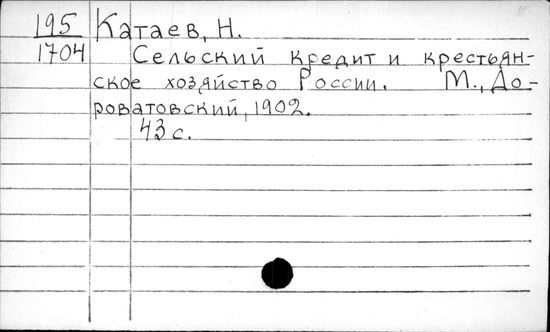 195 Катаев, Н.
1704 Сельский кредит и крестьян-
ское хозяйство России. М., До-
роватовский, 1902.
43 с.